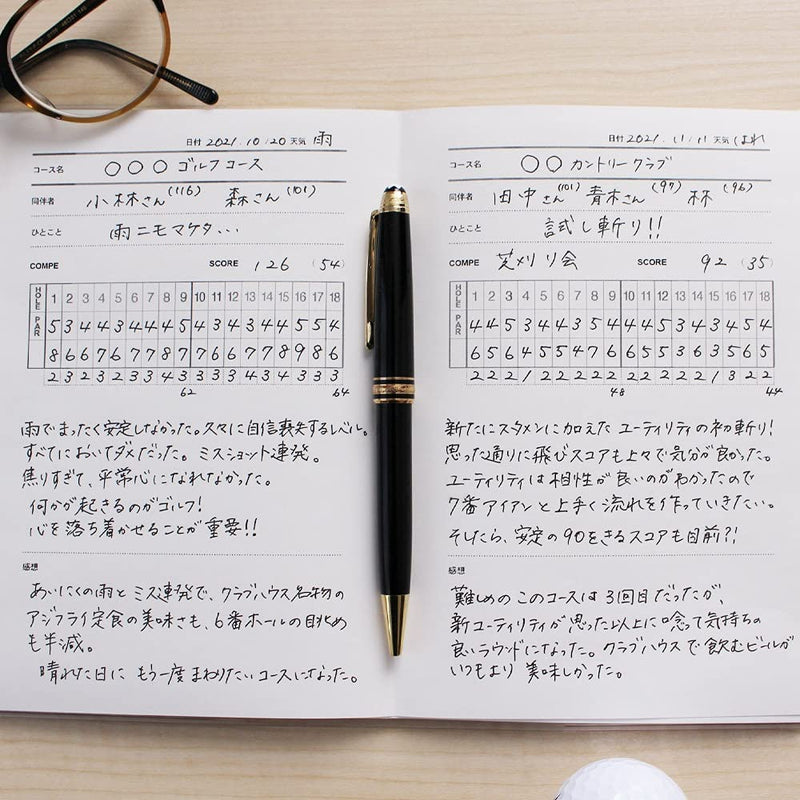 日付 2021.10/20 天気 雨
コース名 ○○○ゴルフコース
同伴者 小林さん(116) 森さん(101)
ひとこと 雨ニモマケタ…
COMPE SCORE 126 (54)
HOLE 1 2 3 4 5 6 7 8 9 10 11 12 13 14 15 16 17 18
PAR 5 3 4 4 3 4 4 4 5 4 3 4 3 4 4 5 5 4
8 6 6 7 6 7 7 8 7 7 6 6 7 7 8 9 8 6
2 3 2 3 2 2 3 2 3 2 3 2 3 4 3 3 3 3
62 64
雨でまったく安定しなかった。久々に自信喪失するレベル。
すべてにおいてダメだった。ミスショット連発。
焦りすぎて、平常心になれなかった。
何かが起きるのがゴルフ!
心を落ち着かせることが重要!!
感想
あいにくの雨とミス連発で、クラブハウス名物の
アジフライ定食の美味さも、6番ホールの眺め
も半減。
晴れた日にもう一度まわりたいコースになった。
日付 2021.11/11 天気 はれ
コース名 ○○カントリークラブ
同伴者 田中さん(101) 青木さん(97) 林(96)
ひとこと 試し斬り!!
COMPE 芝刈り会 SCORE 92 (35)
HOLE 1 2 3 4 5 6 7 8 9 10 11 12 13 14 15 16 17 18
PAR 4 4 5 3 4 4 3 5 4 4 4 5 3 4 3 4 5 4
6 5 5 6 4 5 5 4 7 6
2 2 2 1 2 2 2 2 2 2 2 2 2 2 1 3 2 2
48 44
新たにスタメンに加えたユーティリティの初斬り!
思った通りに飛びスコアも上々で気分が良かった。
ユーティリティは相性が良いのがわかったので
7番アイアンと上手く流れを作っていきたい。
そしたら、安定の90をきるスコアも目前?!
感想
難しめのこのコースは3回目だったが、
新ユーティリティが思った以上に唸って気持ちの
良いラウンドになった。クラブハウスで飲むビールが
いつもより美味しかった。